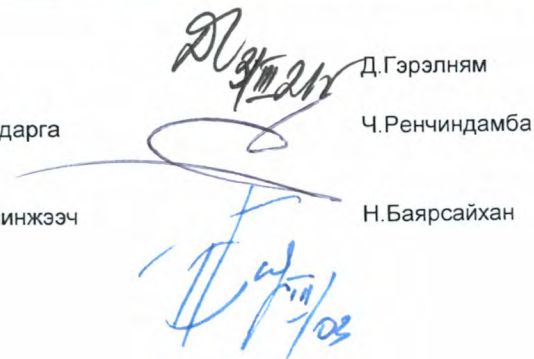 Д.Гэрэлням
дарга Ч.Ренчиндамба
инжээч Н.Баярсайхан